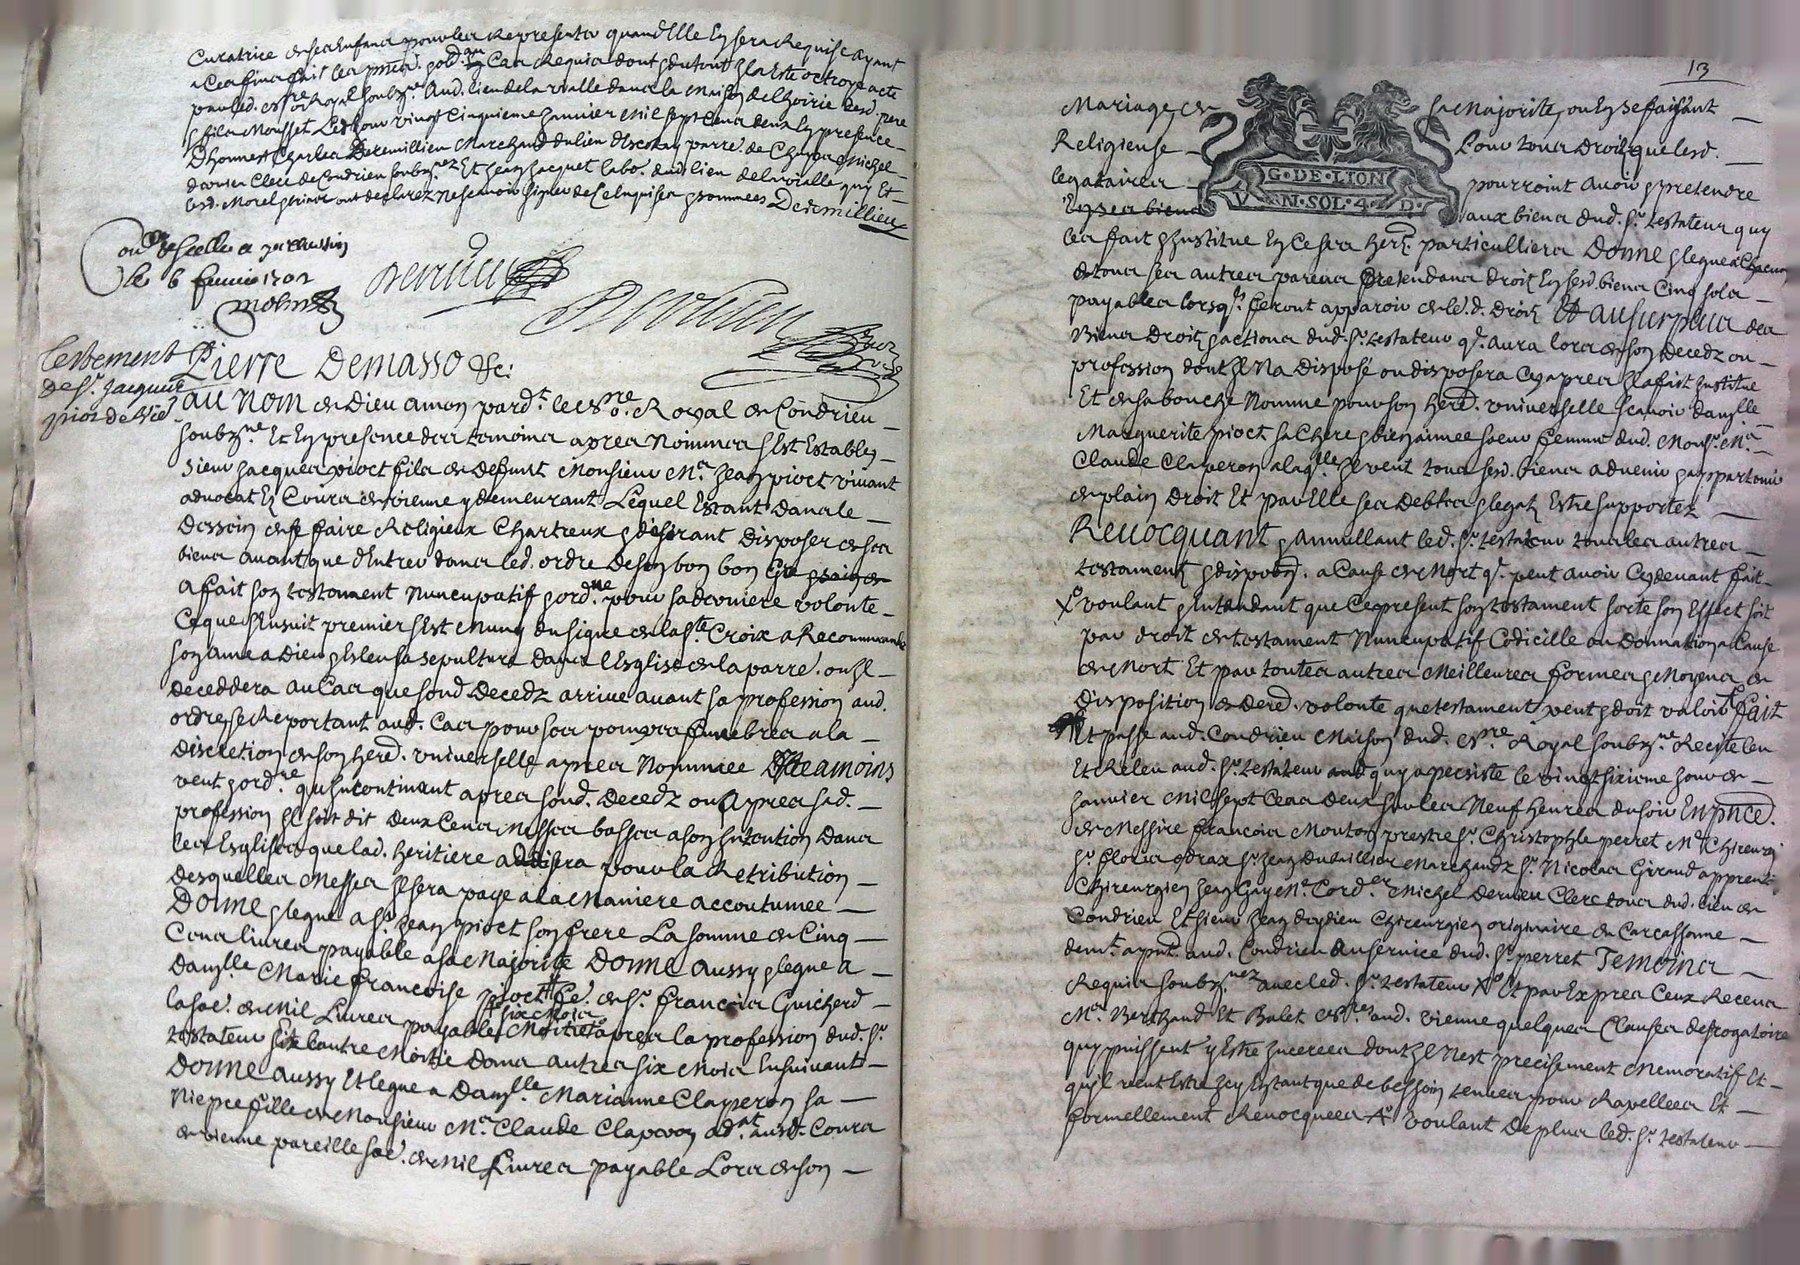 Curatrice de ses Enfans pour les Representer quand Elle En sera Requise ayant
a Ces fins fait les
parled. Royal soubz.ne Aud. lieu de la vialle dans la Maison de l'hoirie desd. pere
& fils Mousset Led. Jour vingt Cinquieme Janvier Mil sept Cens deux En presence
D'honnest Charles Deremillieu Marchand du lieu parre. de Michel
dervieu Clerc de Condrieu soubz.nez Et Jean Jacquet labo. dud. lieu de la vialle quy Et
lesd. Morel ont declarez ne scavoir signer de Ce Enquis & sommees Deremillieu
Con.lle & scelle a
le 6 fevrier 1702
Dervieu
Dervieu
Testement
de Sr. Jacques
piot de Vie.
Pierre Demasso &c:
AU NOM de Dieu amon pard.t le no.re Royal de Condrieu
soubz.ne Et En presence des temoins apres Nommes s'Est Estably
sieur Jacques pioct fils de deffunt Monsieur Me. Jean pioct vivant
advocat Es Cours de vienne y demeurant Lequel Estant dans le
Dessein de se faire Religieux Chartreux & desirant Disposer de ses
biens avant que d'Entrer dans led. ordre De son bon bon Gre
a fait son testament Nuncupatif & ord.ne pour sa derniere volonte
Ce que s'Ensuit premier s'Est Muny du signe de la S.te Croix a Recommande
son ame a Dieu & Esleu sa sepulture dans l'Esglise de la parre. ou Il
deceddera au Cas que sond. Decedz arrive avant sa profession aud.
ordre se Reportant aud. Cas pour ses pompes funebres a la
discretion de son hered. universelle apres Nommee Neamoins
veut & ord.ne qu'Incontinant apres sond. Decedz ou apres sad.
profession Il soit dit deux Cens Messes basses a son Intention Dans
les Esglises que lad. heritiere advisera pour la Retribution
Desquelles Messes Il sera paye a la Maniere accoutumee
DONNE & legue a Sr. Jean pioct son frere La somme de Cinq
Cens livres payable a sa Majorite DONNE aussy & legue a
Damlle. Marie francoise pioct fe. de Sr. francois Guicherd
la soe. de Mil Livres payable Moitie six Mois apres la profession dud. Sr.
testateur Et l'autre Moitie dans autres six Mois Ensuivants
DONNE aussy Et legue a Damlle. Marianne Claperon sa
Niepce fille de Monsieur Me. Claude Claperon ad.at ausd. Cours
de vienne pareille soe. de Mil Livres payable Lors de son
13
Mariage de sa Majorite, ou En se faisant
Religieuse Pour tous Droits que lesd.
legataires pourroint avoir & pretendre
En ses biens aux biens dud. Sr. testateur quy
les fait & Institue En Ce ses her. particulliers DONNE & legue a Chacun
de tous ses autres parens pretendans droit En sesd. biens Cinq sols
payables lorsq.ls feront apparoir de led. droit Et au surplus des
Biens Droits & actions dud. Sr. testateur q.l aura lors de son Decedz ou
profession dont Il Na Disposé ou disposera Cy apres Il a fait Institue
Et de sa bouche Nomme pour son hered. universelle scavoir damlle
Marguerite pioct sa Chere & bien aimee soeur femme dud. Mons.r Me.
Claude Claperon a laq.lle Il veut tous sesd. biens advenir & appartenir
de plain Droit Et par Elle ses Debtes & legats Estre supportez
REVOCQUANT & annullant led. Sr. testateur tous les autres
testaments & dispo.on. a Cause de Mort q.l peut avoir Cy devant fait
voulant & Entendant que Ce present son testament sorte son Effect soit
par droit de testament Nuncupatif Codicille ou Donnation a Cause
de Mort Et par toutes autres Meilleures formes & Moyens de
Disposition de dere. volonte que testament peut & doit valoir fait
Et passe aud. Condrieu Maison dud. no.re Royal soubz.ne Recite leu
Et Releu aud. Sr. testateur quy a persiste le vingt sixieme Jour de
Janvier Mil sept Cens Deux sur les Neuf heures du soir EN p.nce.
de Messire francois Mouton prestre Sr. Christophle perret Me Chirurg.
Sr. Floris Sr. Jean Marchandz Sr. Nicolas Giraud apprenti
Chirurgien Jean Guy Me. Cord.er Michel Dervieu Clerc tous dud. lieu de
Condrieu Et sieur Jean Chirurgien originaire de Carcassonne
dem.t a p.nt. aud. Condrieu au service dud. Sr. perret Temoins
Requis soubz.nez avec led. Sr. testateur Et par Expres Ceux Receus
Me. Berthaud Et Balet no.res aud. vienne quelques Clauses desrogatoires
quy puissent y Estre Inserees dont Il N'est precisement Memoratif Et
qu'Il veut Estre Icy Entant que de bessoin tenues pour Rapellees Et
formellement Revocquees voulant De plus led. Sr. testateur
G·DE·LION
VN·SOL·4·D·